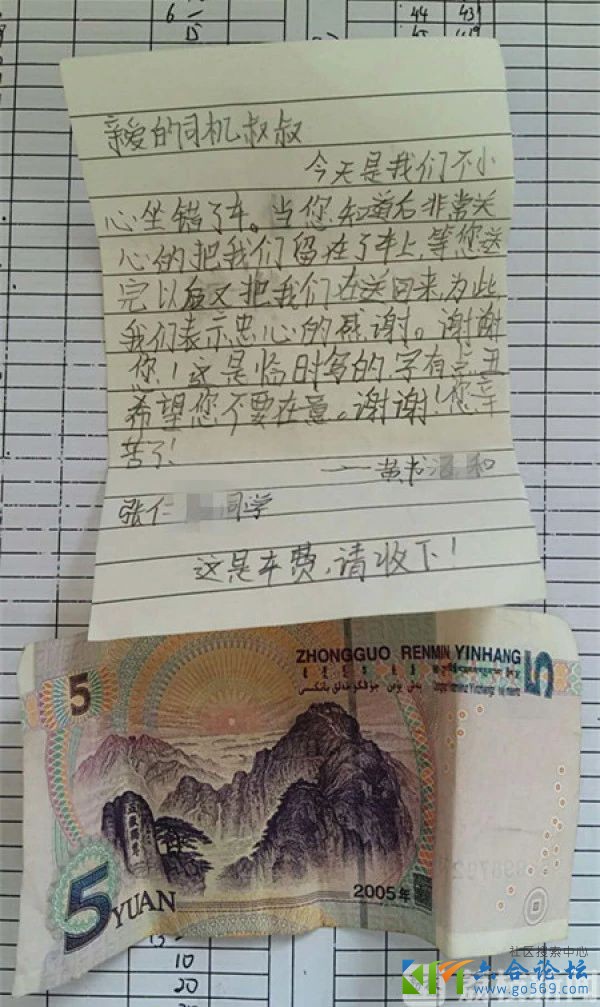 6
15
44 43
亲爱的司机叔叔
今天是我们不小
心坐错了车。当您知道后非常关
心的把我们留在了车上,等您送
完以后又把我们在送回来,为此
我们表示忠心的感谢。谢谢
您!这是临时写的,字有点丑
希望您不要在意。谢谢!您辛
苦了!
——黄书 和
张仁 同学
这是车费,请收下!
ZHONGGUO RENMIN YINHANG
5
5
5 YUAN
2005年
10
20
社区搜索中心
六合论坛
www.go569.com